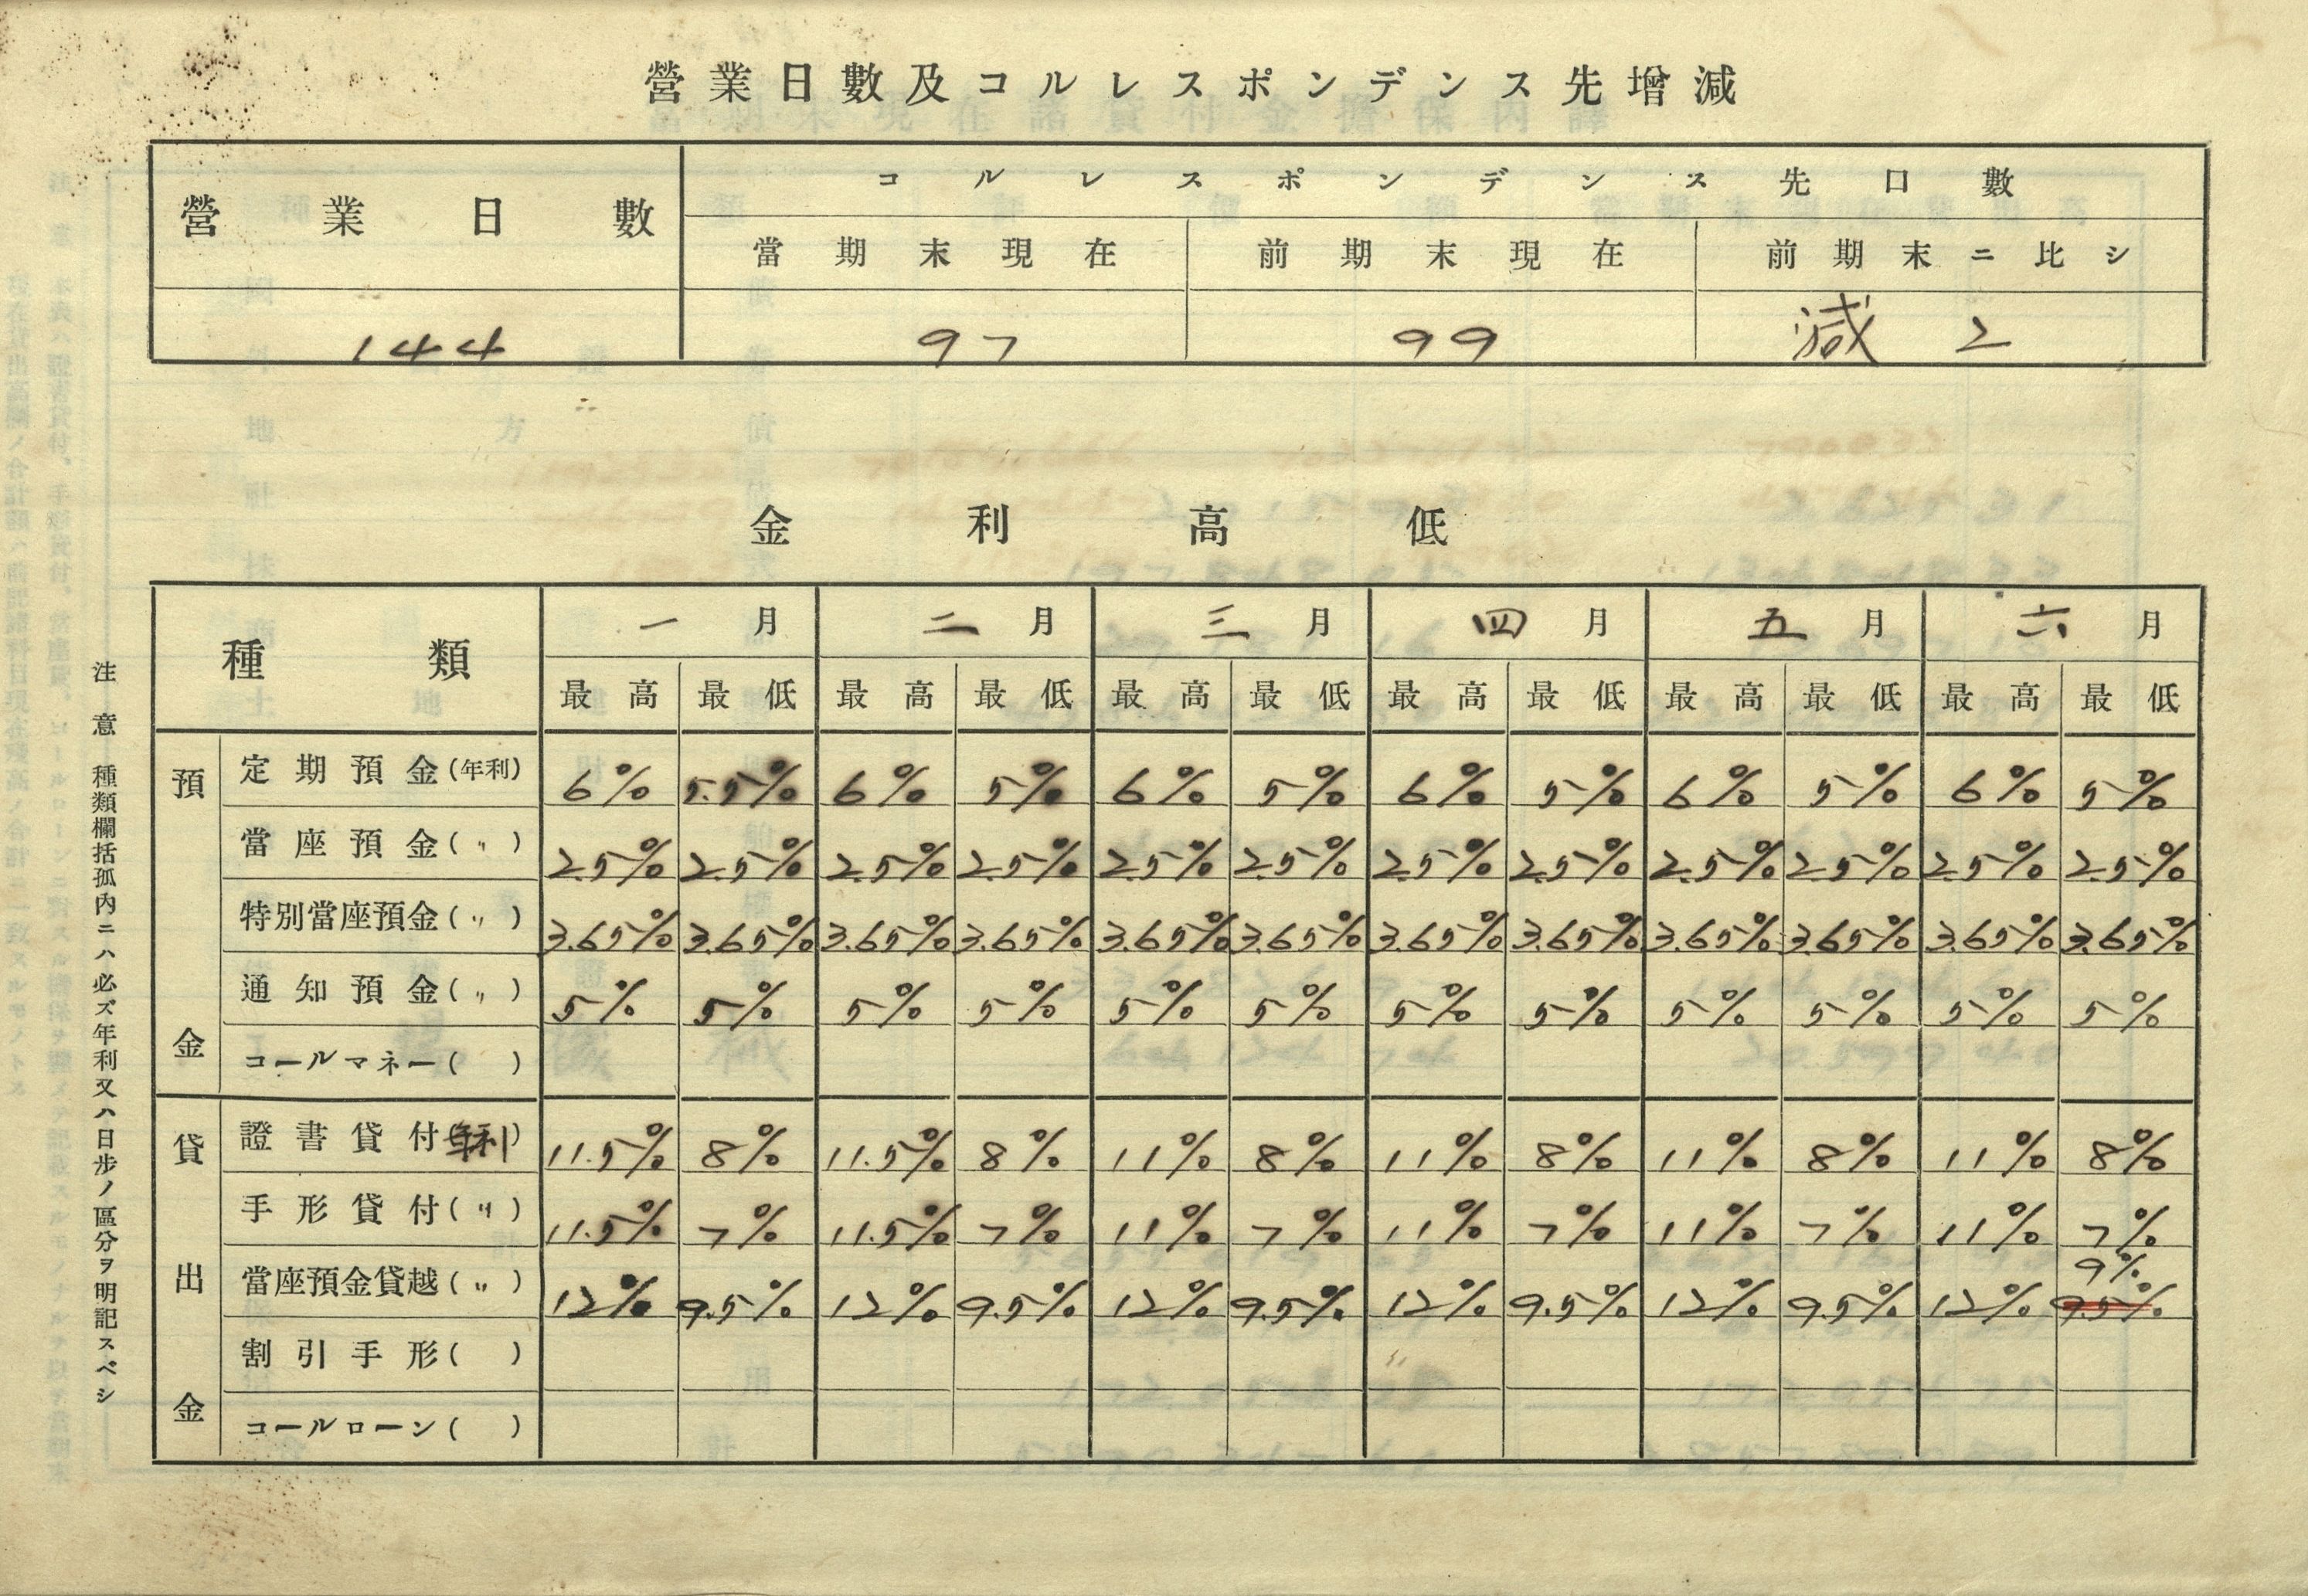 營業日數及コルレスポンデンス先增減
營業日數 コルレスポンデンス先口數
當期末現在 前期末現在 前期末ニ比シ
144 97 99 減 2
金利高低
種類 一月 二月 三月 四月 五月 六月
最高 最低 最高 最低 最高 最低 最高 最低 最高 最低 最高 最低
預金
定期預金(年利) 6% 5.5% 6% 5% 6% 5% 6% 5% 6% 5% 6% 5%
當座預金(〃) 2.5% 2.5% 2.5% 2.5% 2.5% 2.5% 2.5% 2.5% 2.5% 2.5% 2.5% 2.5%
特別當座預金(〃) 3.65% 3.65% 3.65% 3.65% 3.65% 3.65% 3.65% 3.65% 3.65% 3.65% 3.65% 3.65%
通知預金(〃) 5% 5% 5% 5% 5% 5% 5% 5% 5% 5% 5% 5%
コールマネー( )
貸出金
證書貸付(年利) 11.5% 8% 11.5% 8% 11% 8% 11% 8% 11% 8% 11% 8%
手形貸付(〃) 11.5% 7% 11.5% 7% 11% 7% 11% 7% 11% 7% 11% 7%
9%
當座預金貸越(〃) 12% 9.5% 12% 9.5% 12% 9.5% 12% 9.5% 12% 9.5% 12% 9.5%
割引手形( )
コールローン( )
注意 種類欄括孤內ニハ必ズ年利又ハ日步ノ區分ヲ明記スベシ